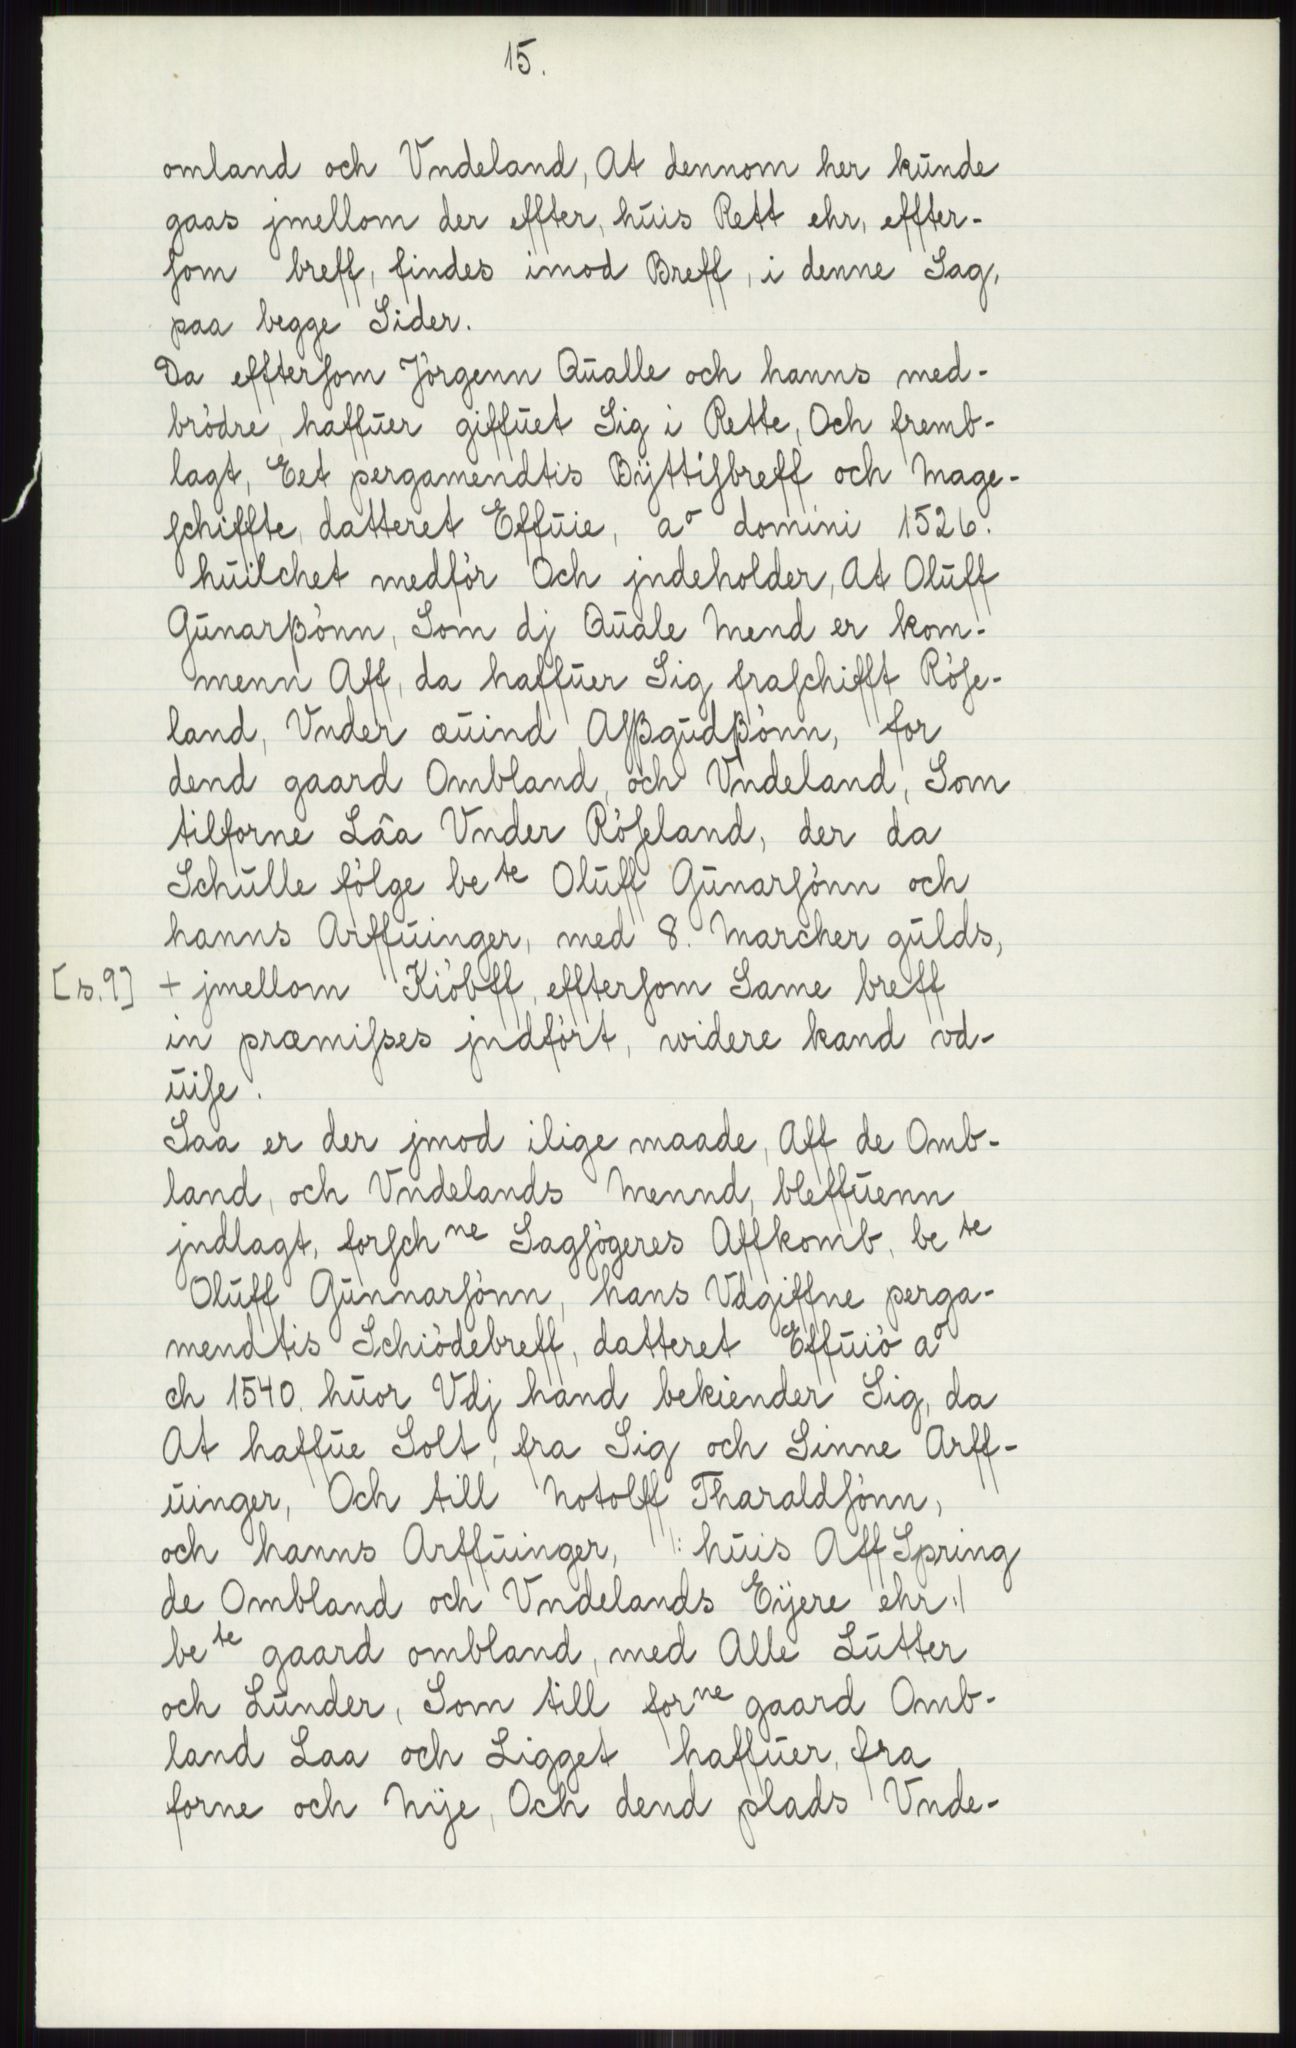 15.
omland och Vndeland, At dennom her kūnde
gaas jmellom der effter, hūis Rett ehr, effter-
ſom breff, findes imod Breff, i denne Sag,
paa begge Sider.
Da effterſom Jörgenn Qūalle och hanns med-
brödre, haffūer giffūet Sig i Rette, Och fremb-
lagt, Eet pergamendtis Bÿttiſbreff och Mage-
ſchiffte, datteret Effūie, a° domini 1526.
hūilchet medför Och jndeholder, At Olūff
Gūnarßönn, Som dj Qūale Mend er kom-
menn Aff, da haffūer Sig fraſchifft Röſe-
land, Vnder æūind Aſßgūdßönn, for
dend gaard Ombland, och Vndeland, Som
tilforne Lâa Vnder Röſeland, der da
Schūlle fölge be te Olūff Gūnarſönn och
hanns Arffūinger, med 8. Marcher gūlds,
[s. 9] + jmellom Kiöbff, effterſom Same breff
in præmiſses jndfört, widere kand vd-
ūiſe.
Saa er der jmod ilige maade, Aff de Omb-
land, och Vndelands Mennd, bleffūenn
jndlagt, forſch ne Sagſögeres Affkomb, be te
Olūff Gūnnarſönn, hans Vdgiffne perga-
mendtis Schiödebreff, datteret Effūiö a°
ch 1540. hūor Vdj hand bekiender Sig, da
At haffūe Solt, fra Sig och Sinne Arff-
ūinger, Och till Notolff Tharaldſönn,
och hanns Arffūinger, /: hūis Aff Spring
de Ombland och Vndelands Eÿere ehr :/
be te gaard ombland, med Alle Lūtter
och Lūnder, Som till for ne gaard Omb-
land Laa och Ligget haffūer, fra
forne och Nÿe, Och dend plads Vnde-